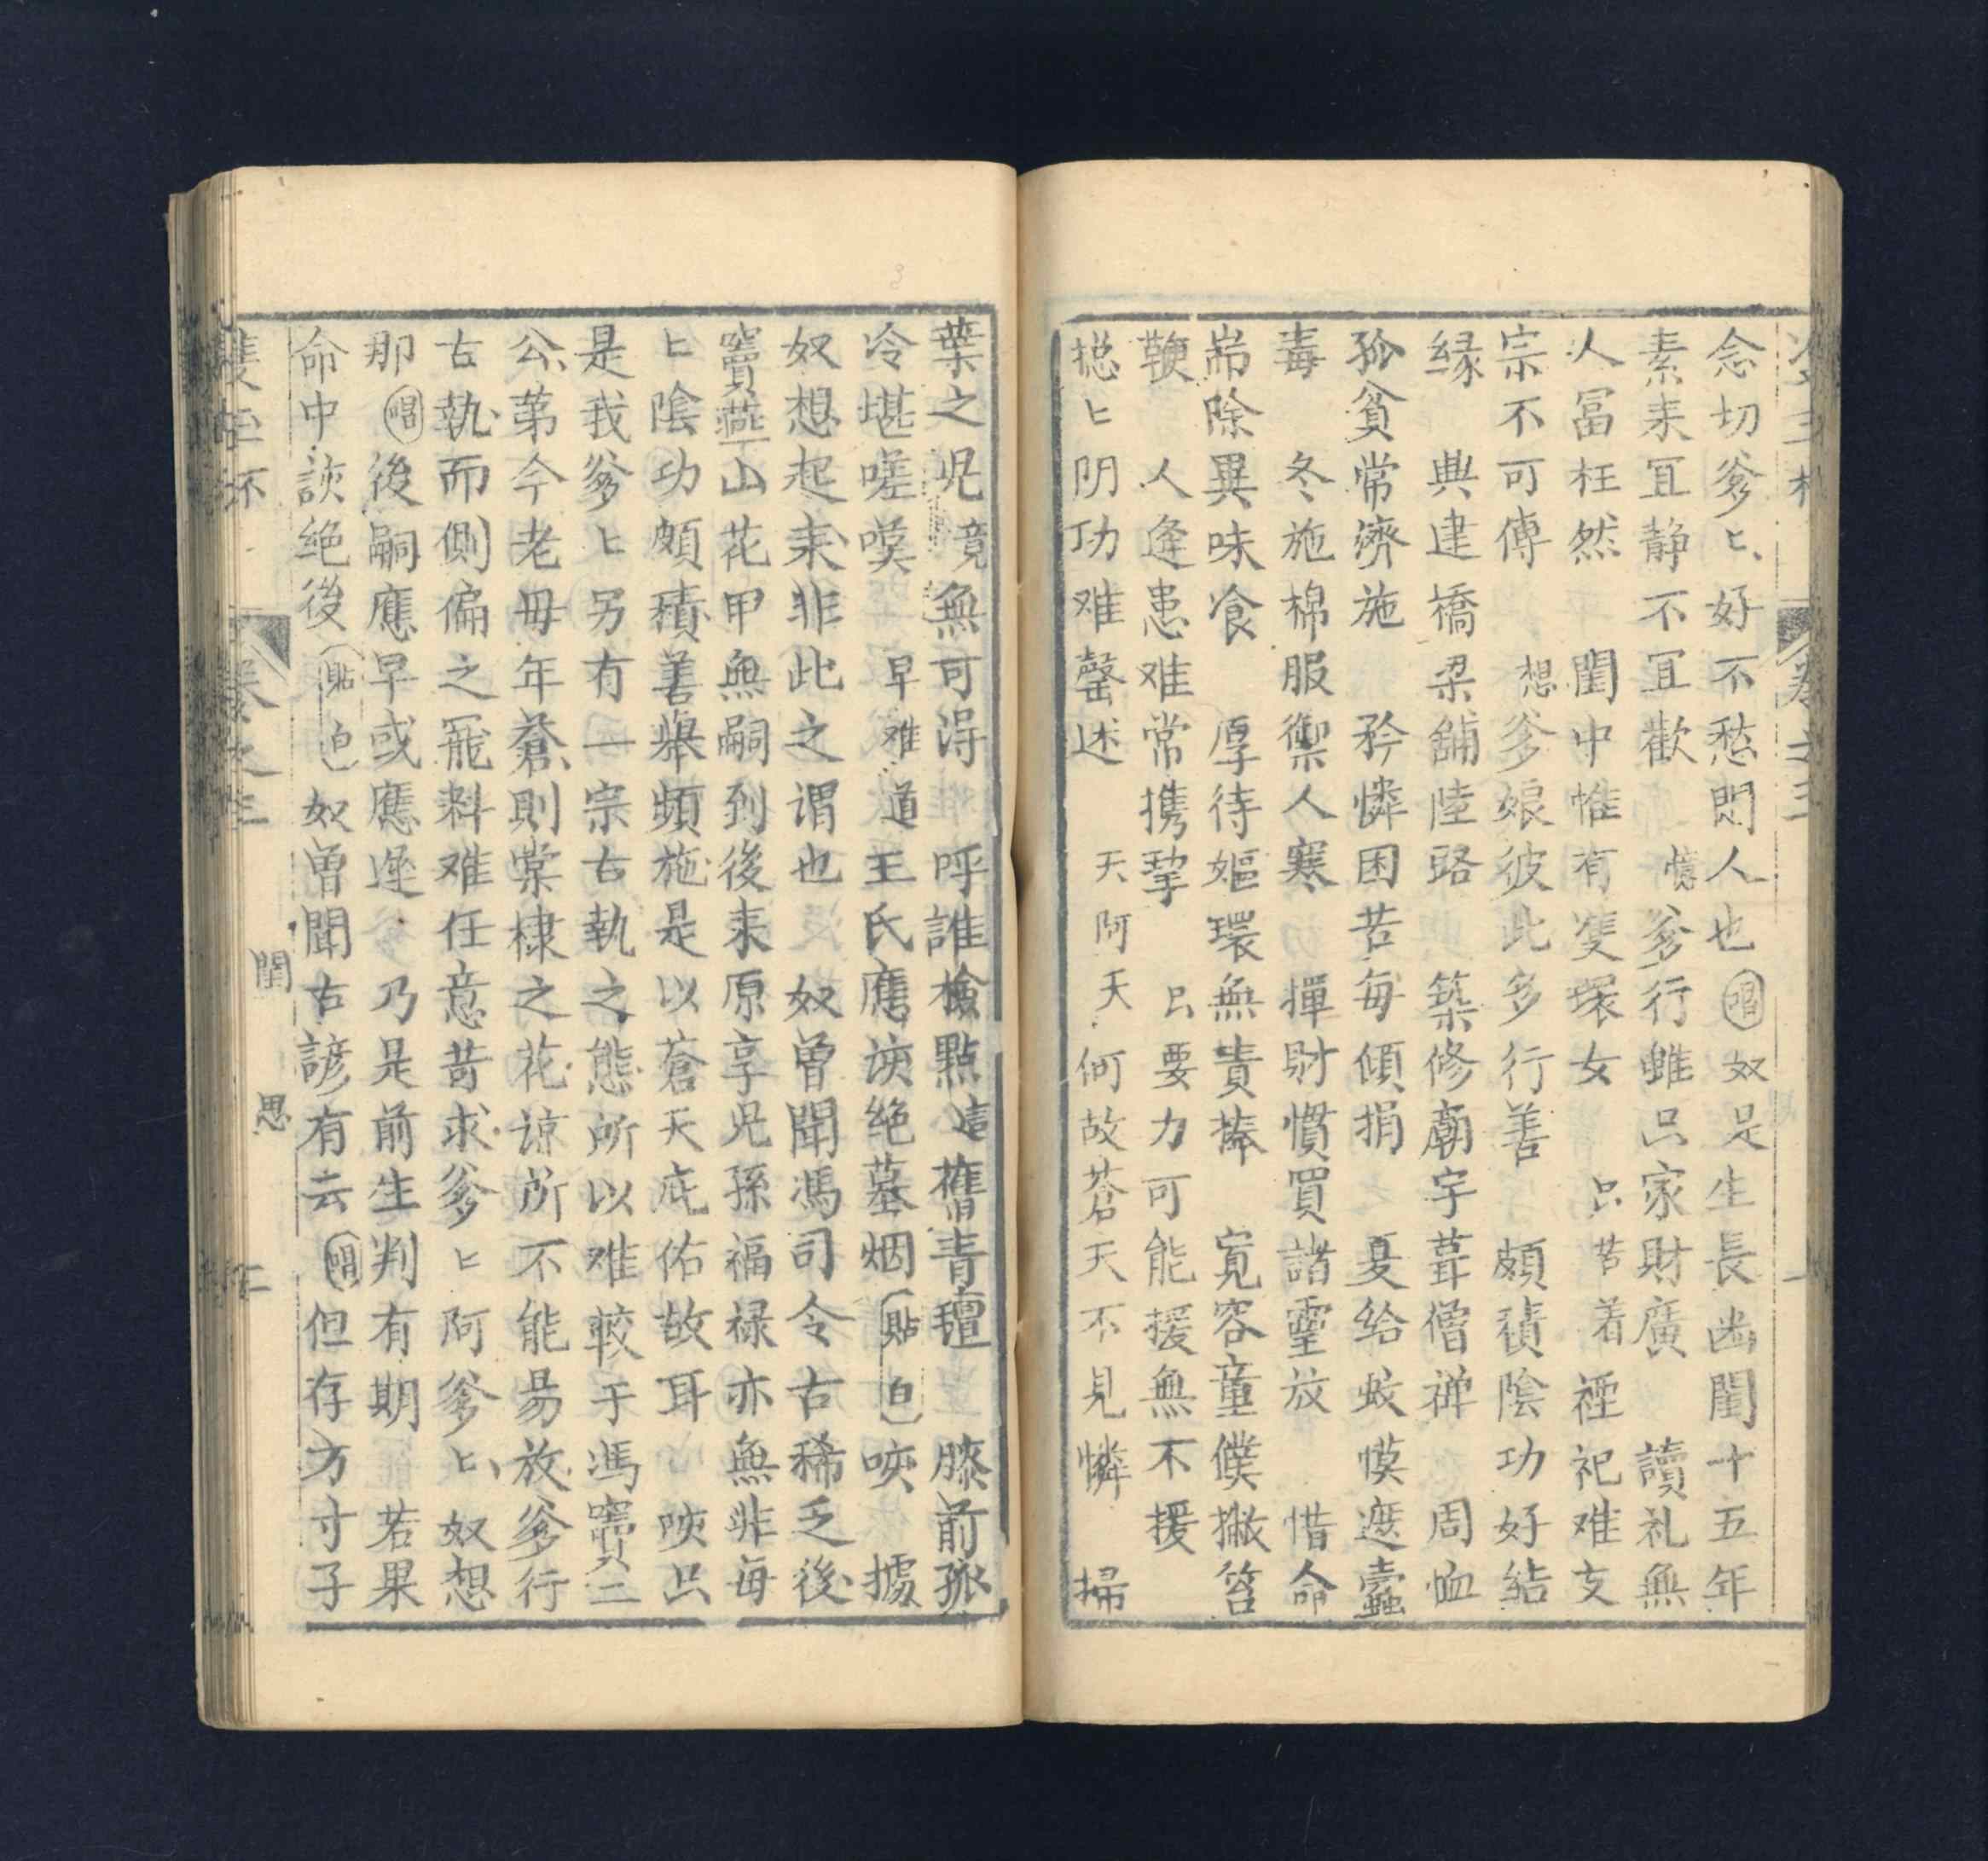 念切爹匕好不愁悶人也 唱 奴是生長幽閨十五年
素耒冝静不冝歡 憶爹行雖只家財廣 讀礼無
人冨枉然 閨中惟有雙環女 只苦着禋祀难支
宗不可傳 想爹娘彼此多行善 頗積陰功好結
緣 興建橋梁舖陸路 築修廟宇葺僧禅 周恤
孤貧常濟施 矜憐困苦每傾捐 夏給蚊幙遮蠧
毒 冬施棉服禦人寒 揮財慣買諸靈放 惜命
耑除異味飡 厚待嫗環無責捧 寬容童僕撇笞
鞭 人逢患难常携挈 只要力可能援無不援
捴匕阴功难罄述 天阿天何故蒼天不見憐 掃
葉之児竟無可淂 呼誰檢點這舊青氊 膝前孤
冷堪嗟嘆 早难道王氏應該絶墓烟 貼白 唉 據
奴想起耒非此之谓也 奴曽聞馮司令古稀乏後
竇燕山花甲無嗣到後耒原享児孫福禄亦無非每
匕陰功頗積善舉頻施是以蒼天庇佑故耳 唉只
是我爹匕另有一宗古執之態所以难較于馮竇二
公第今老毋年蒼則棠棣之花諒所不能昜放爹行
古執而側偏之寵料难任意苛求爹匕阿爹匕奴想
那 唱 後嗣應早或應遲 乃是前生判有期 若果
命中該絶後 貼白 奴曽聞古諺有云 唱 但存方寸子
卷之三
閨 思